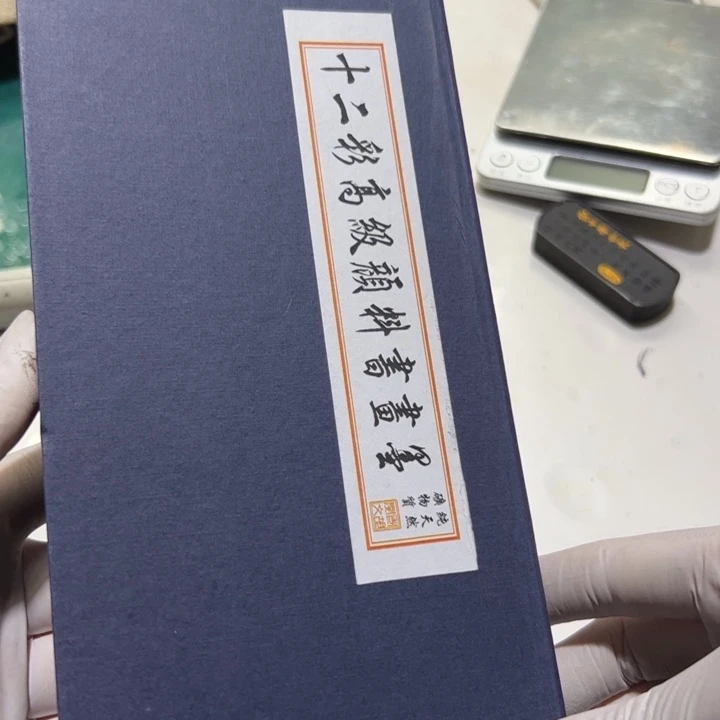 十二彩高級顔料書畫墨
純天然
礦物質